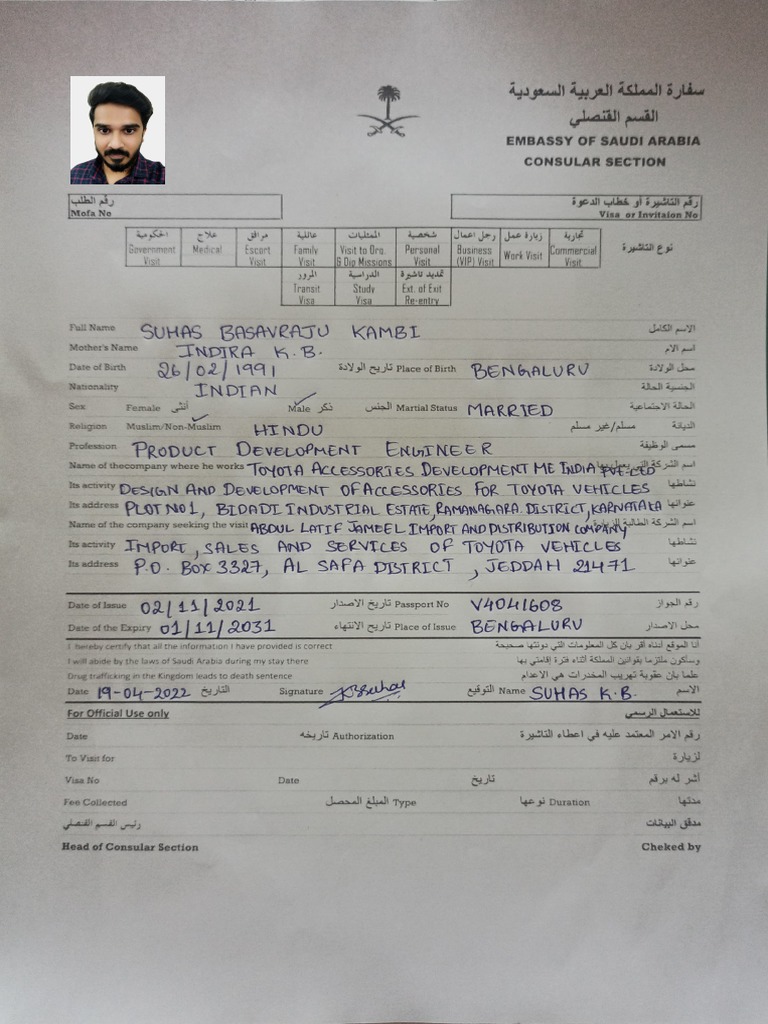 سفارة المملكة العربية السعودية
القسم القنصلي
EMBASSY OF SAUDI ARABIA
CONSULAR SECTION
رقم الطلب
Mofa No
رقم التاشيرة أو خطاب الدعوة
Visa or Invitaion No
الحكومية علاج مرافق عائلية الممثليات شخصية رجل اعمال زيارة عمل تجارية
Government Visit Medical Escort Visit Family Visit Visit to Org. & Dip Missions Personal Visit Business (VIP) Visit Work Visit Commercial Visit نوع التاشيرة
المرور الدراسية تمديد تاشيرة
Transit Visa Study Visa Ext. of Exit Re-entry
Full Name SUHAS BASAVRAJU KAMBI الاسم الكامل
Mother's Name INDIRA K.B. اسم الام
Date of Birth 26/02/1991 تاريخ الولادة Place of Birth BENGALURU محل الولادة
Nationality INDIAN الجنسية الحالة
Sex Female أنثى Male ذكر الجنس Martial Status MARRIED الحالة الاجتماعية
Religion Muslim/Non-Muslim HINDU مسلم/غير مسلم الديانة
Profession PRODUCT DEVELOPMENT ENGINEER مسمى الوظيفة
Name of thecompany where he works TOYOTA ACCESSORIES DEVELOPMENT ME INDIA PVT LTD اسم الشركة التي يعمل بها
Its activity DESIGN AND DEVELOPMENT OF ACCESSORIES FOR TOYOTA VEHICLES نشاطها
Its address PLOT NO1, BIDADI INDUSTRIAL ESTATE, RAMANAGARA DISTRICT, KARNATAKA عنوانها
Name of the company seeking the visit ABDUL LATIF JAMEEL IMPORT AND DISTRIBUTION COMPANY اسم الشركة الطالبة الزيارة
Its activity IMPORT, SALES AND SERVICES OF TOYOTA VEHICLES نشاطها
Its address P.O. BOX 3327, AL SAFA DISTRICT, JEDDAH 21471 عنوانها
Date of Issue 02/11/2021 تاريخ الاصدار Passport No V4041608 رقم الجواز
Date of the Expiry 01/11/2031 تاريخ الانتهاء Place of Issue BENGALURU محل الاصدار
I hereby certify that all the information I have provided is correct أنا الموقع أدناه أقر بان كل المعلومات التي دونتها صحيحة
I will abide by the laws of Saudi Arabia during my stay there وسأكون ملتزما بقوانين المملكة أثناء فترة إقامتي بها
Drug trafficking in the Kingdom leads to death sentence علما بان عقوبة تهريب المخدرات هي الاعدام
Date 19-04-2022 التاريخ Signature KBSuhas التوقيع Name SUHAS K.B. الاسم
For Official Use only للاستعمال الرسمي
Date تاريخه Authorization رقم الامر المعتمد عليه في اعطاء التاشيرة
To Visit for لزيارة
Visa No Date تاريخ أشر له برقم
Fee Collected المبلغ المحصل Type نوعها Duration مدتها
رئيس القسم القنصلي مدقق البيانات
Head of Consular Section Cheked by